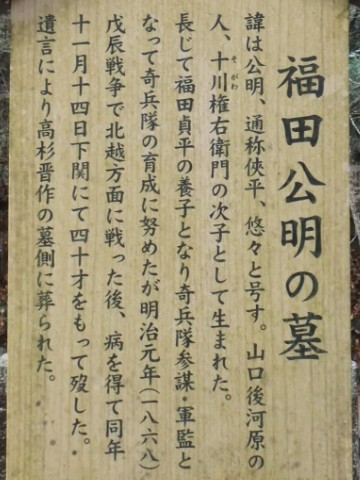 福田公明の墓
諱は公明、通称侠平、悠々と号す。山口後河原の
人、十川権右衛門の次子として生まれた。
そがわ
長じて福田貞平の養子となり奇兵隊参謀・軍監と
なって奇兵隊の育成に努めたが明治元年(一八六八)
戊辰戦争で北越方面に戦った後、病を得て同年
十一月十四日下関にて四十才をもって歿した。
遺言により高杉晋作の墓側に葬られた。